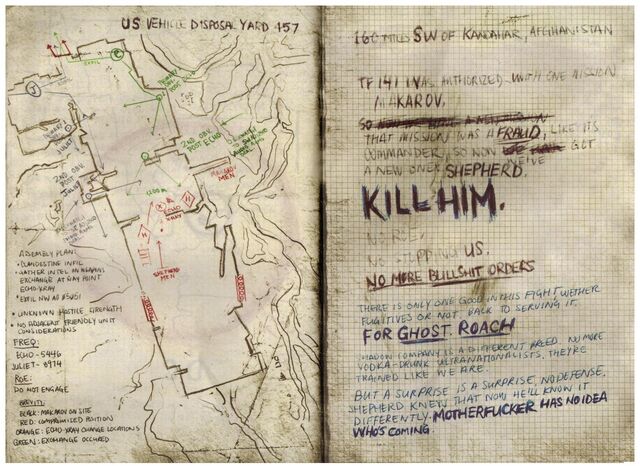 US VEHICLE DISPOSAL YARD 157
EXFIL
2ND OBV.
POST ECHO
2ND OBV
POST
JULIET
MAKAROV
MEN
ECHO
XRAY
SHEPHERD
MEN
ASSEMBLY PLAN:
• CLANDESTINE INFIL
• GATHER INTEL ON WEAPONS
EXCHANGE AT RAY POINT
ECHO-XRAY
• EXFIL NW AO #5051
• UNKNOWN HOSTILE STRENGTH
• NO ADJACENT FRIENDLY UNIT
CONSIDERATIONS
FREQ:
ECHO - 5446
JULIET - 8974
ROE:
DO NOT ENGAGE
BREVITY:
BLACK: MAKAROV ON SITE
RED: COMPROMISED POSITION
ORANGE: ECHO-XRAY CHANGE LOCATIONS
GREEN: EXCHANGE OCCURED
160 MILES SW OF KANDAHAR, AFGHANISTAN
TF 141 WAS AUTHORIZED WITH ONE MISSION
MAKAROV.
THAT MISSION WAS A FRAUD, LIKE ITS
COMMANDER, SO NOW WE'VE GOT
A NEW ONE: SHEPHERD.
KILL HIM.
NO ROE,
NO STOPPING US.
NO MORE BULLSHIT ORDERS
THERE IS ONLY ONE GOOD IN THIS FIGHT WETHER
FUGITIVES OR NOT. BACK TO SERVING IT.
FOR GHOST ROACH
SHADOW COMPANY IS A DIFFERENT BREED. NO MORE
VODKA-DRUNK ULTRANATIONALISTS, THEY'RE
TRAINED LIKE WE ARE.
BUT A SURPRISE IS A SURPRISE, NO DEFENSE.
SHEPHERD KNEW THAT NOW HE'LL KNOW IT
DIFFERENTLY. MOTHERFUCKER HAS NO IDEA
WHO'S COMING.